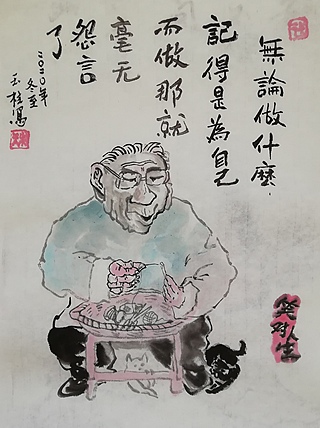 無論做什麼,
記得是為自己
而做那就
毫无
怨言
了
二〇二〇年
冬至
玉柱寫
笑对人生